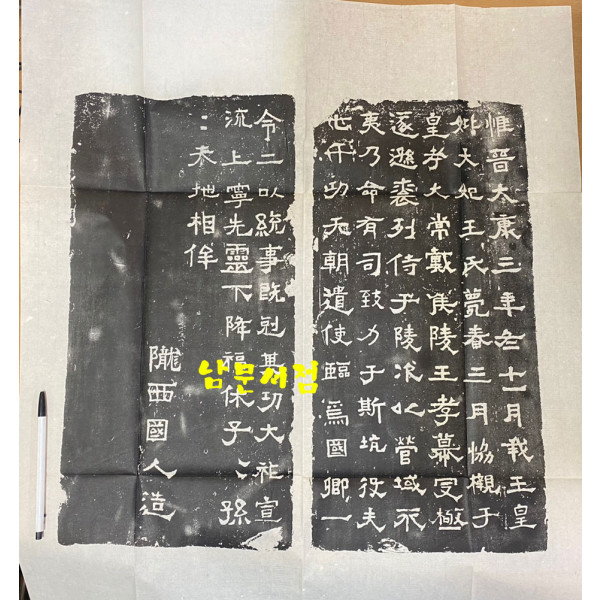 惟晉太康三年冬十一月我王皇
妣大妃王氏薨春三月協櫬于
皇考大常戴侯陵王孝慕罔極
遂遜裘列侍于陵次營域不
夷乃命有司致力于斯坑役夫
七千功夫朝遣使臨焉國卿一
令二以統事既剋其功大祚宣
流上寧先靈下降福休子〻孫
〻天地相侔
隴西國人造
남문서점